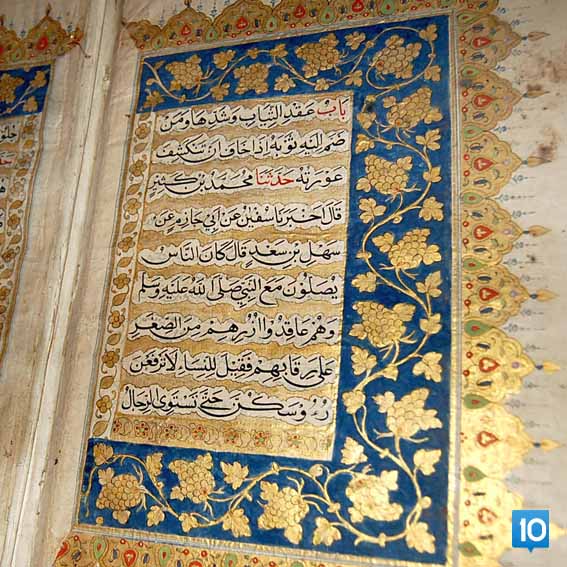 باب عقد الثياب وشدها ومن
ضم اليه ثوبه اذا خاف ان تنكشف
عورته حدثنا محمد بن كثير
قال اخبرنا سفين عن ابي حازم عن
سهل بن سعد قال كان الناس
يصلون مع النبي صلى الله عليه وسلم
وهم عاقدوا ازرهم من الصغر
على رقابهم فقيل للنساء لا ترفعن
رؤسكن حتى تستوي الرجال
10